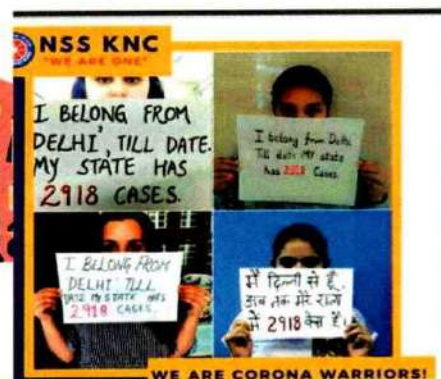 NSS KNC
"WE ARE ONE"
I BELONG FROM
DELHI', TILL DATE.
MY STATE HAS
2918 CASES.
I belong from Delhi
Till date MY state
has 2918 Cases.
I BELONG FROM
'DELHI' TILL
DATE MY STATE HAS
2918 CASES.
मैं दिल्ली से हूँ,
अब तक मेरे राज्य
में 2918 केस हैं।
WE ARE CORONA WARRIORS!